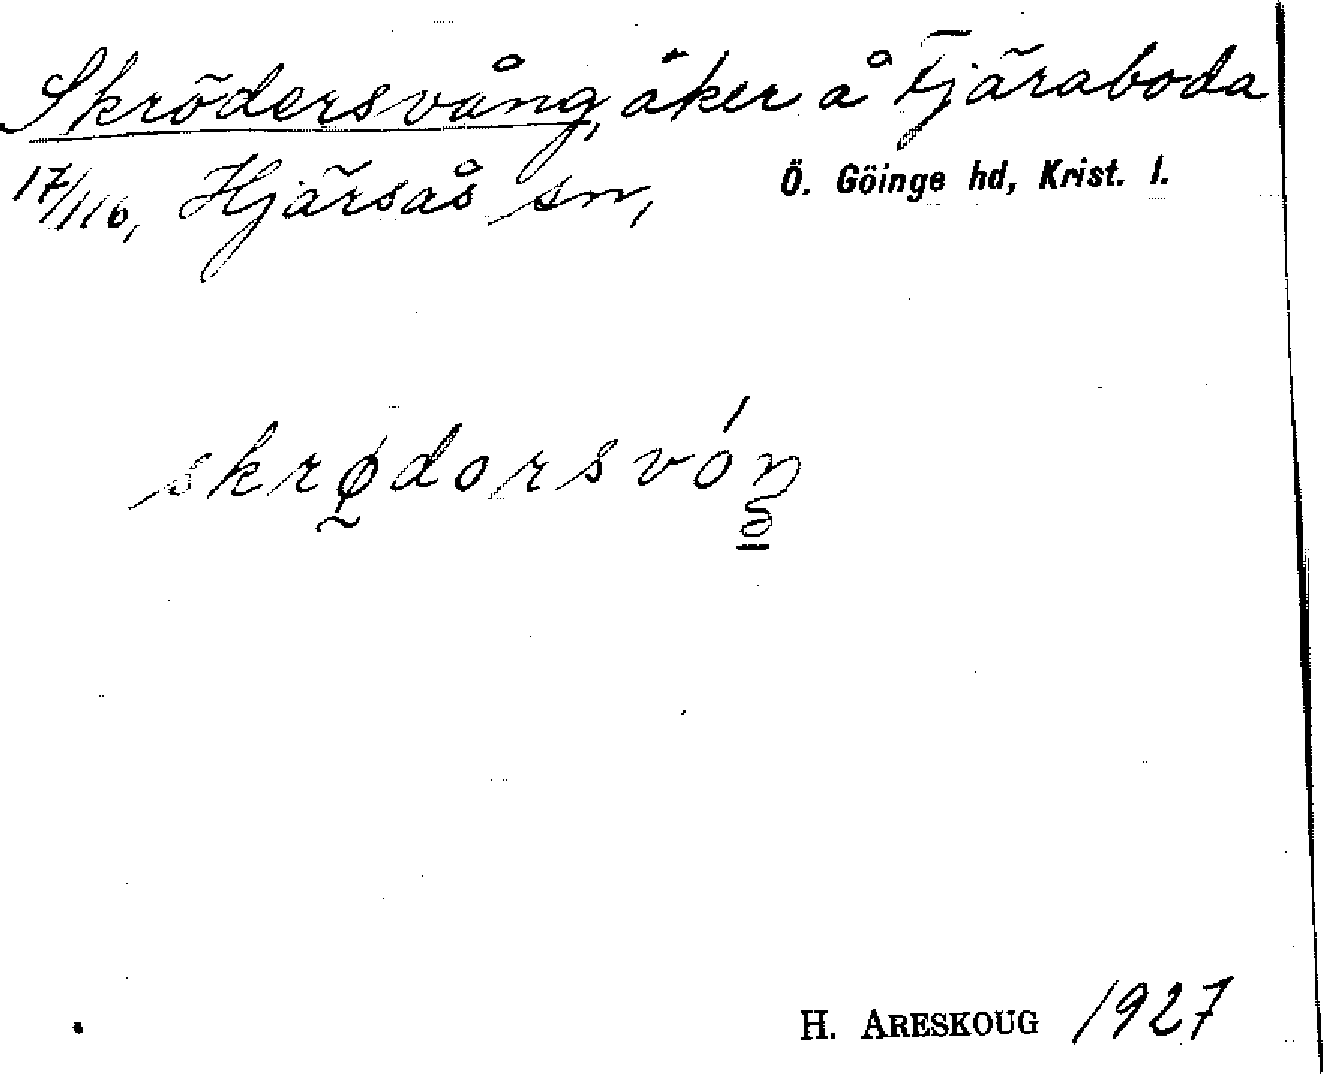 Skrödersvång, åker å Fjäraboda
17/116, Hjärsås sn, Ö. Göinge hd, Krist. l.
skrødorsvóŋ
H. ARESKOUG 1927